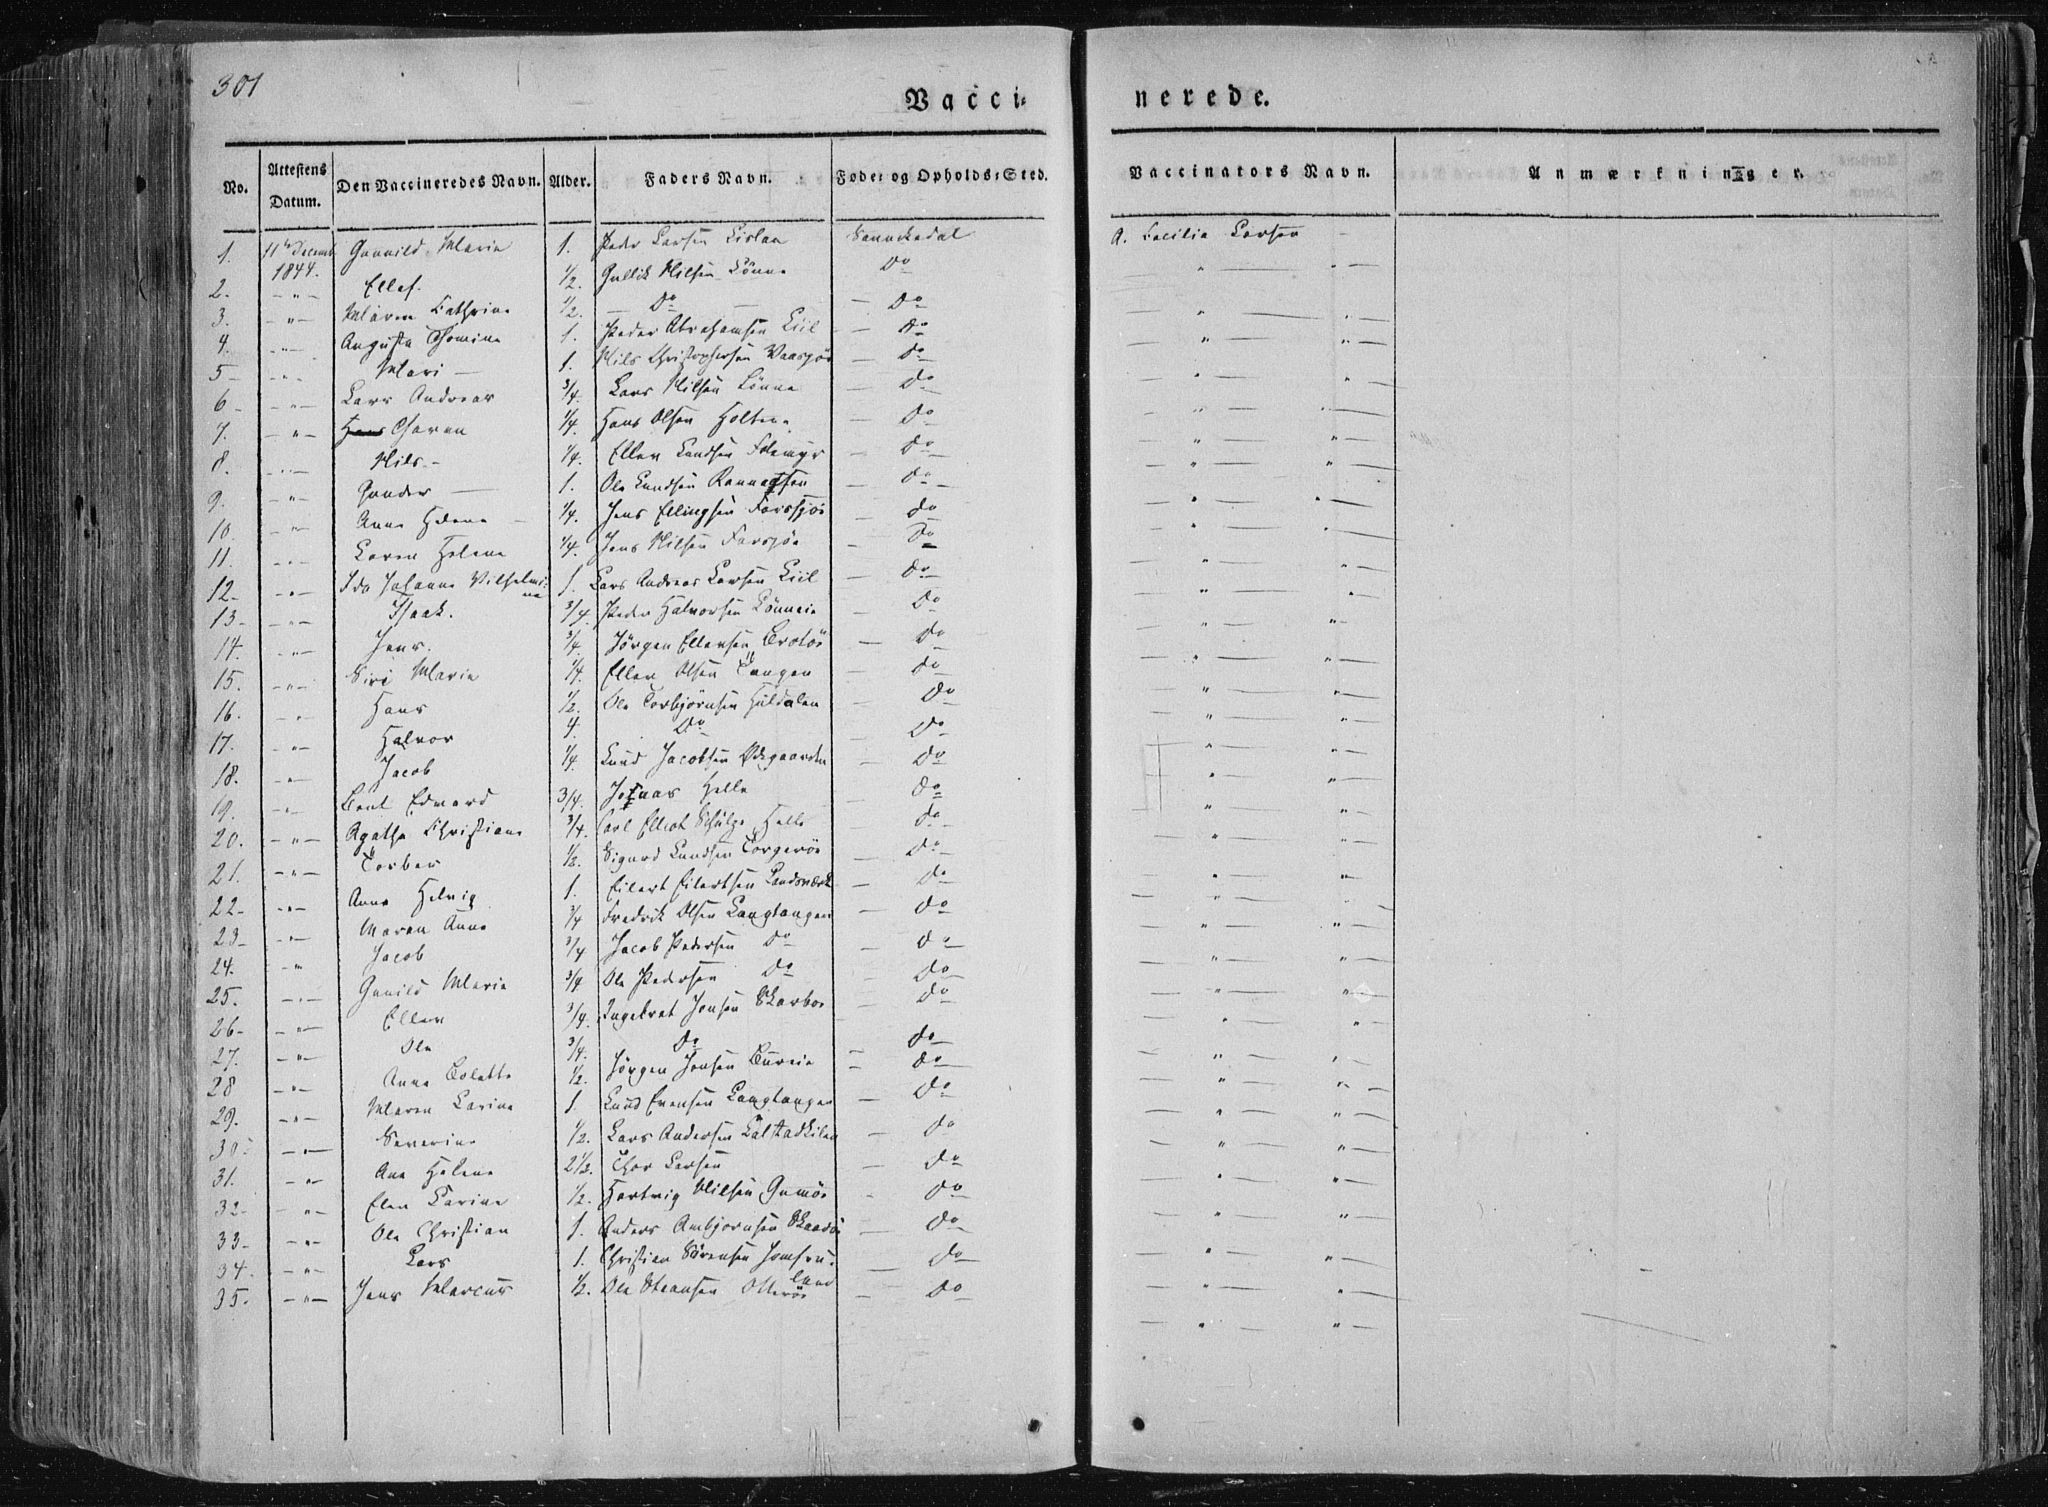 301
Vacci= nerede.
No. Attestens Datum. Den Vaccineredes Navn. Alder. Faders Navn. Føde= og Opholds=Sted. Vaccinators Navn. Anmærkninger.
1. 11te Decemb. 1844. Gunnild Marie 1. Peder Larsen Sannikedal A. Cecilia Larsen
2. — " — Ellef. 1/2. Gullik Nilsen Lönne Do " — " —
3. — " — Maren Cathrine 1/2. — Do — Do " — " —
4. — " — Augusta Thomine 1. Peder Abrahamsen Kiil Do " — " —
5 — " — Mari — 1. Nils Christophersen Vaasjöe Do " — " —
6 — " — Lars Andreas 3/4. Lars Nilsen Lönne Do " — " —
7. — " — Hans Maren 1/4. Hans Olsen Holten Do " — " —
8. — " — Nils — 1/4. Ellev Knudsen Do " — " —
9. — " — Gunder — 1. Ole Knudsen Do " — " —
10. — " — Anne Helene — 1/4. Jens Ellingsen Farssjöe Do " — " —
11. — " — Karen Helene 1/4. Jens Nilsen Farsjöe Do " — " —
12 — " — Ida Johanne Vilhelmine 1. Lars Andreas Larsen Kiil Do " — " —
13 — " — Isaak. 3/4. Peder Halvorsen Do " — " —
14. — " — Jens. 3/4. Jörgen Ellevsen Brotöe Do " — " —
15. — " — Siri Marie 1/4. Ellev Olsen Tangen Do " — " —
16. — " — Hans 1/2. Ole Torbjörnsen Huldalen Do " — " —
17. — " — Halvor 4. Do Do " — " —
18. — " — Jacob 1/4. Knud Jacobsen Ödegaarden Do " — " —
19. — " — Bent Edvard 3/4. Jonas Helle Do " — " —
20. — " — Agathe Christiane 3/4. Carl Elliot Schulze Helle Do " — " —
21. — " — Torber 1/2. Sigurd Knudsen Torgeröe Do " — " —
22 — " — Anne Helvig 1. Eilert Eilertsen Landsværk Do " — " —
23 — " — Maren Anne 3/4 Fredrik Olsen Langtangen Do " — " —
24. — " — Jacob 3/4 Jacob Pedersen Do Do " — " —
25. — " — Gunild Marie 3/4 Ole Pedersen Do Do " — " —
26 — " — Ellev 3/4. Ingebret Jensen Skarboe Do " — " —
27. — " — Ole 3/4. Do Do " — " —
28 — " — Anne Colette 1/2. Jörgen Jensen Do " — " —
29. — " — Maren Karine 1. Knud Evensen Langtangen Do " — " —
30 — " — Severine 1/2. Lars Andersen Do " — " —
31. — " — Ane Helene 2 1/2. Thor Larsen Do " — " —
32 — " — Elen Karine 1/2. Hartvig Nilsen Gumöe Do " — " —
33 — " — Ole Christian 1. Anders Ambjornsen Skaadöe Do " — " —
34. — " — Lars 1. Christian Sörensen Jomfruland Do " — " —
35. — " — Jens Marcus 1/2. Ole Steansen Otteröe Do " — " —